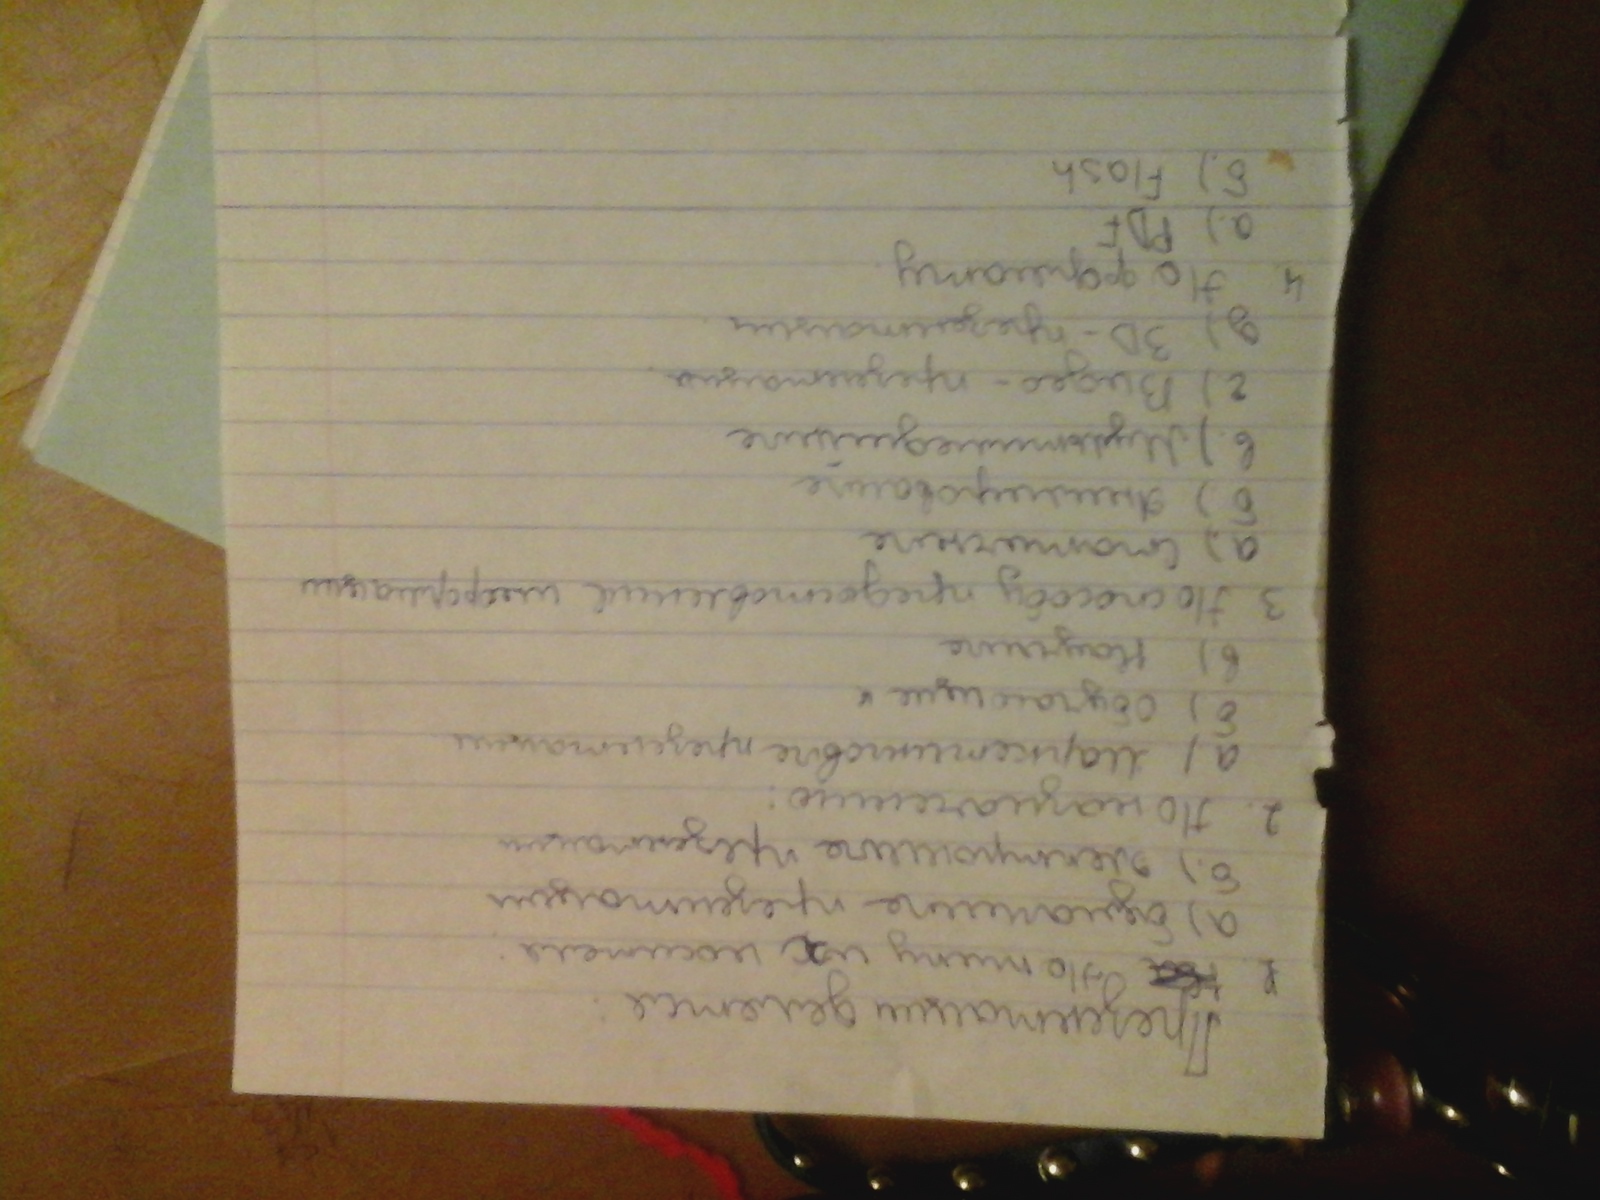 Презентации делятся:
1. По типу их носителя:
а) бумажные презентации
б.) электронные презентации
2. По назначению:
а) маркетинговые презентации
б) обучающие
в) научные
3 По способу предоставления информации
а.) статичные
б) анимированные
в.) Мультимедийные
г.) Видео - презентация
д.) 3D - презентации
4. По формату
а.) PDF
б.) Flash